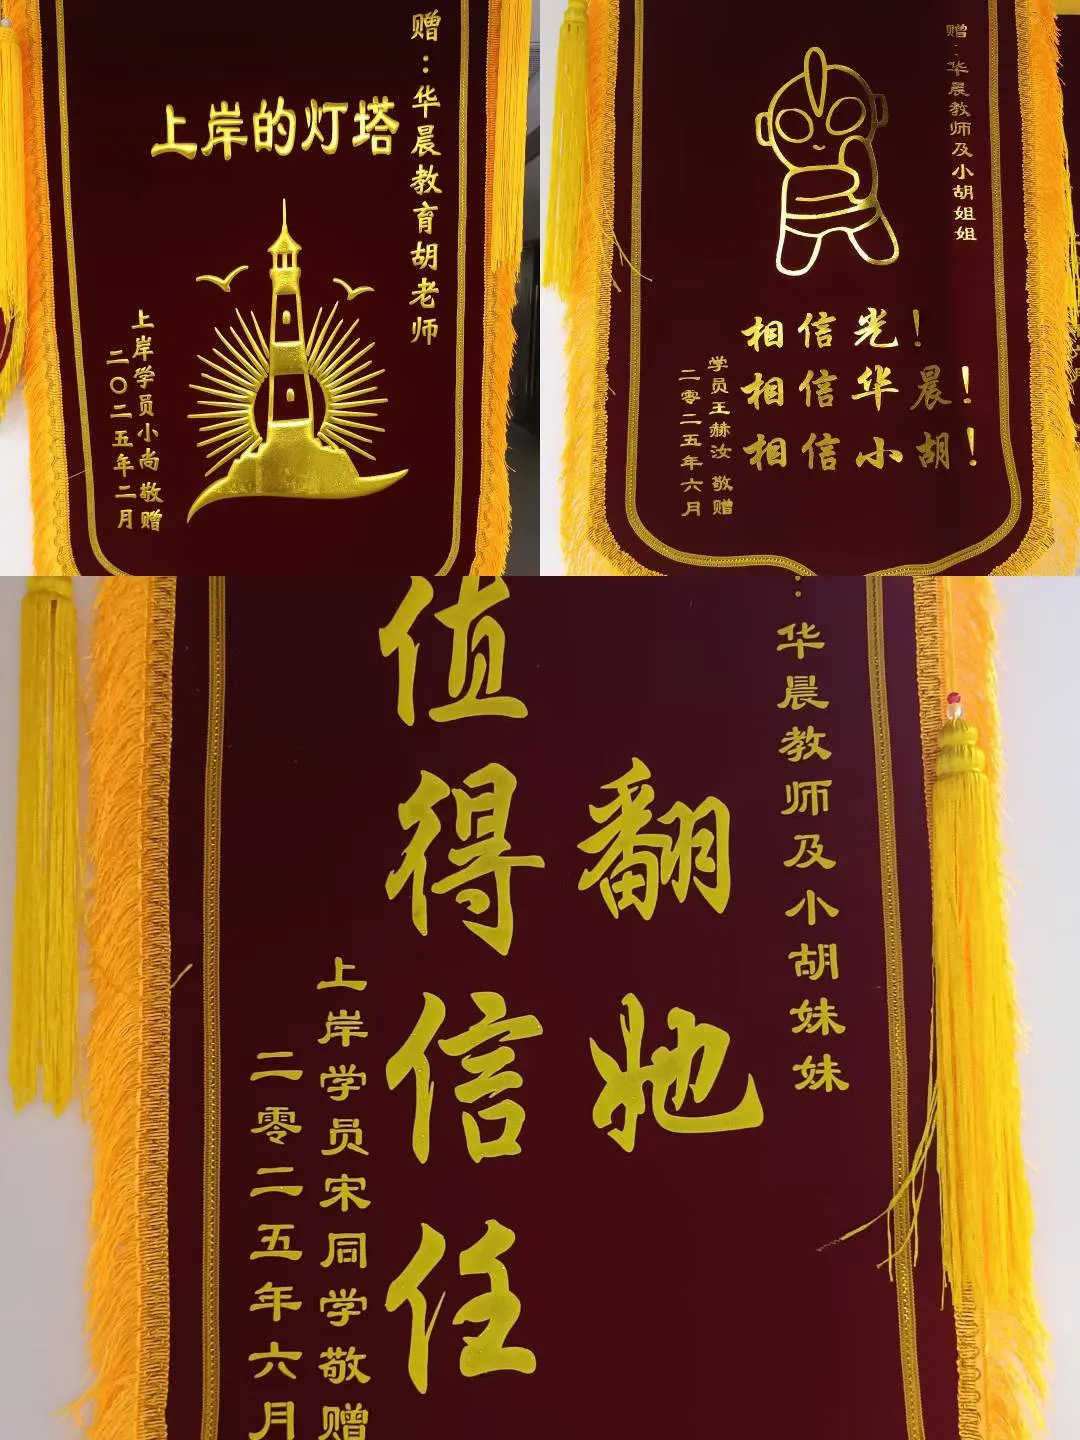 赠：华晨教育胡老师
上岸的灯塔
上岸学员小尚 敬赠
二〇二五年二月
赠：华晨教师及小胡姐姐
相信光！
相信华晨！
相信小胡！
学员王赫汝 敬赠
二零二五年六月
：华晨教师及小胡妹妹
翻她
值得信任
上岸学员宋同学敬赠
二零二五年六月